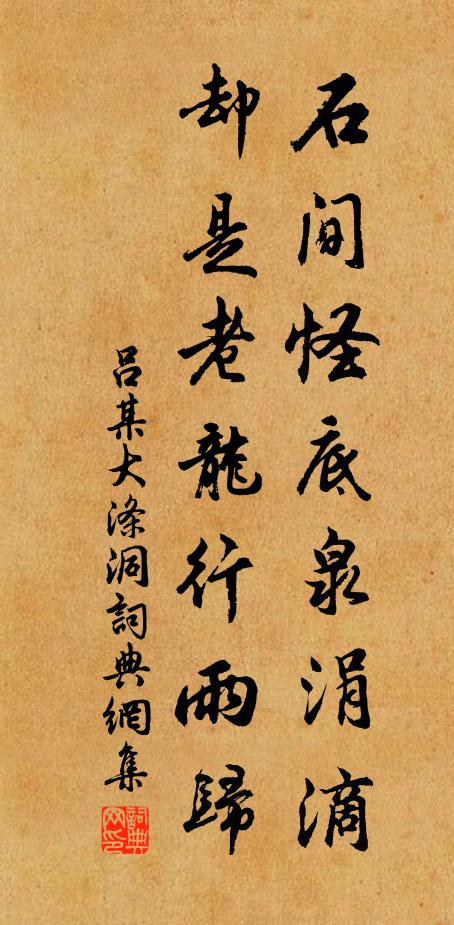 石间怪底泉涓滴
却是老龍行雨歸
吕某大滌洞詞典網集
詞典網印